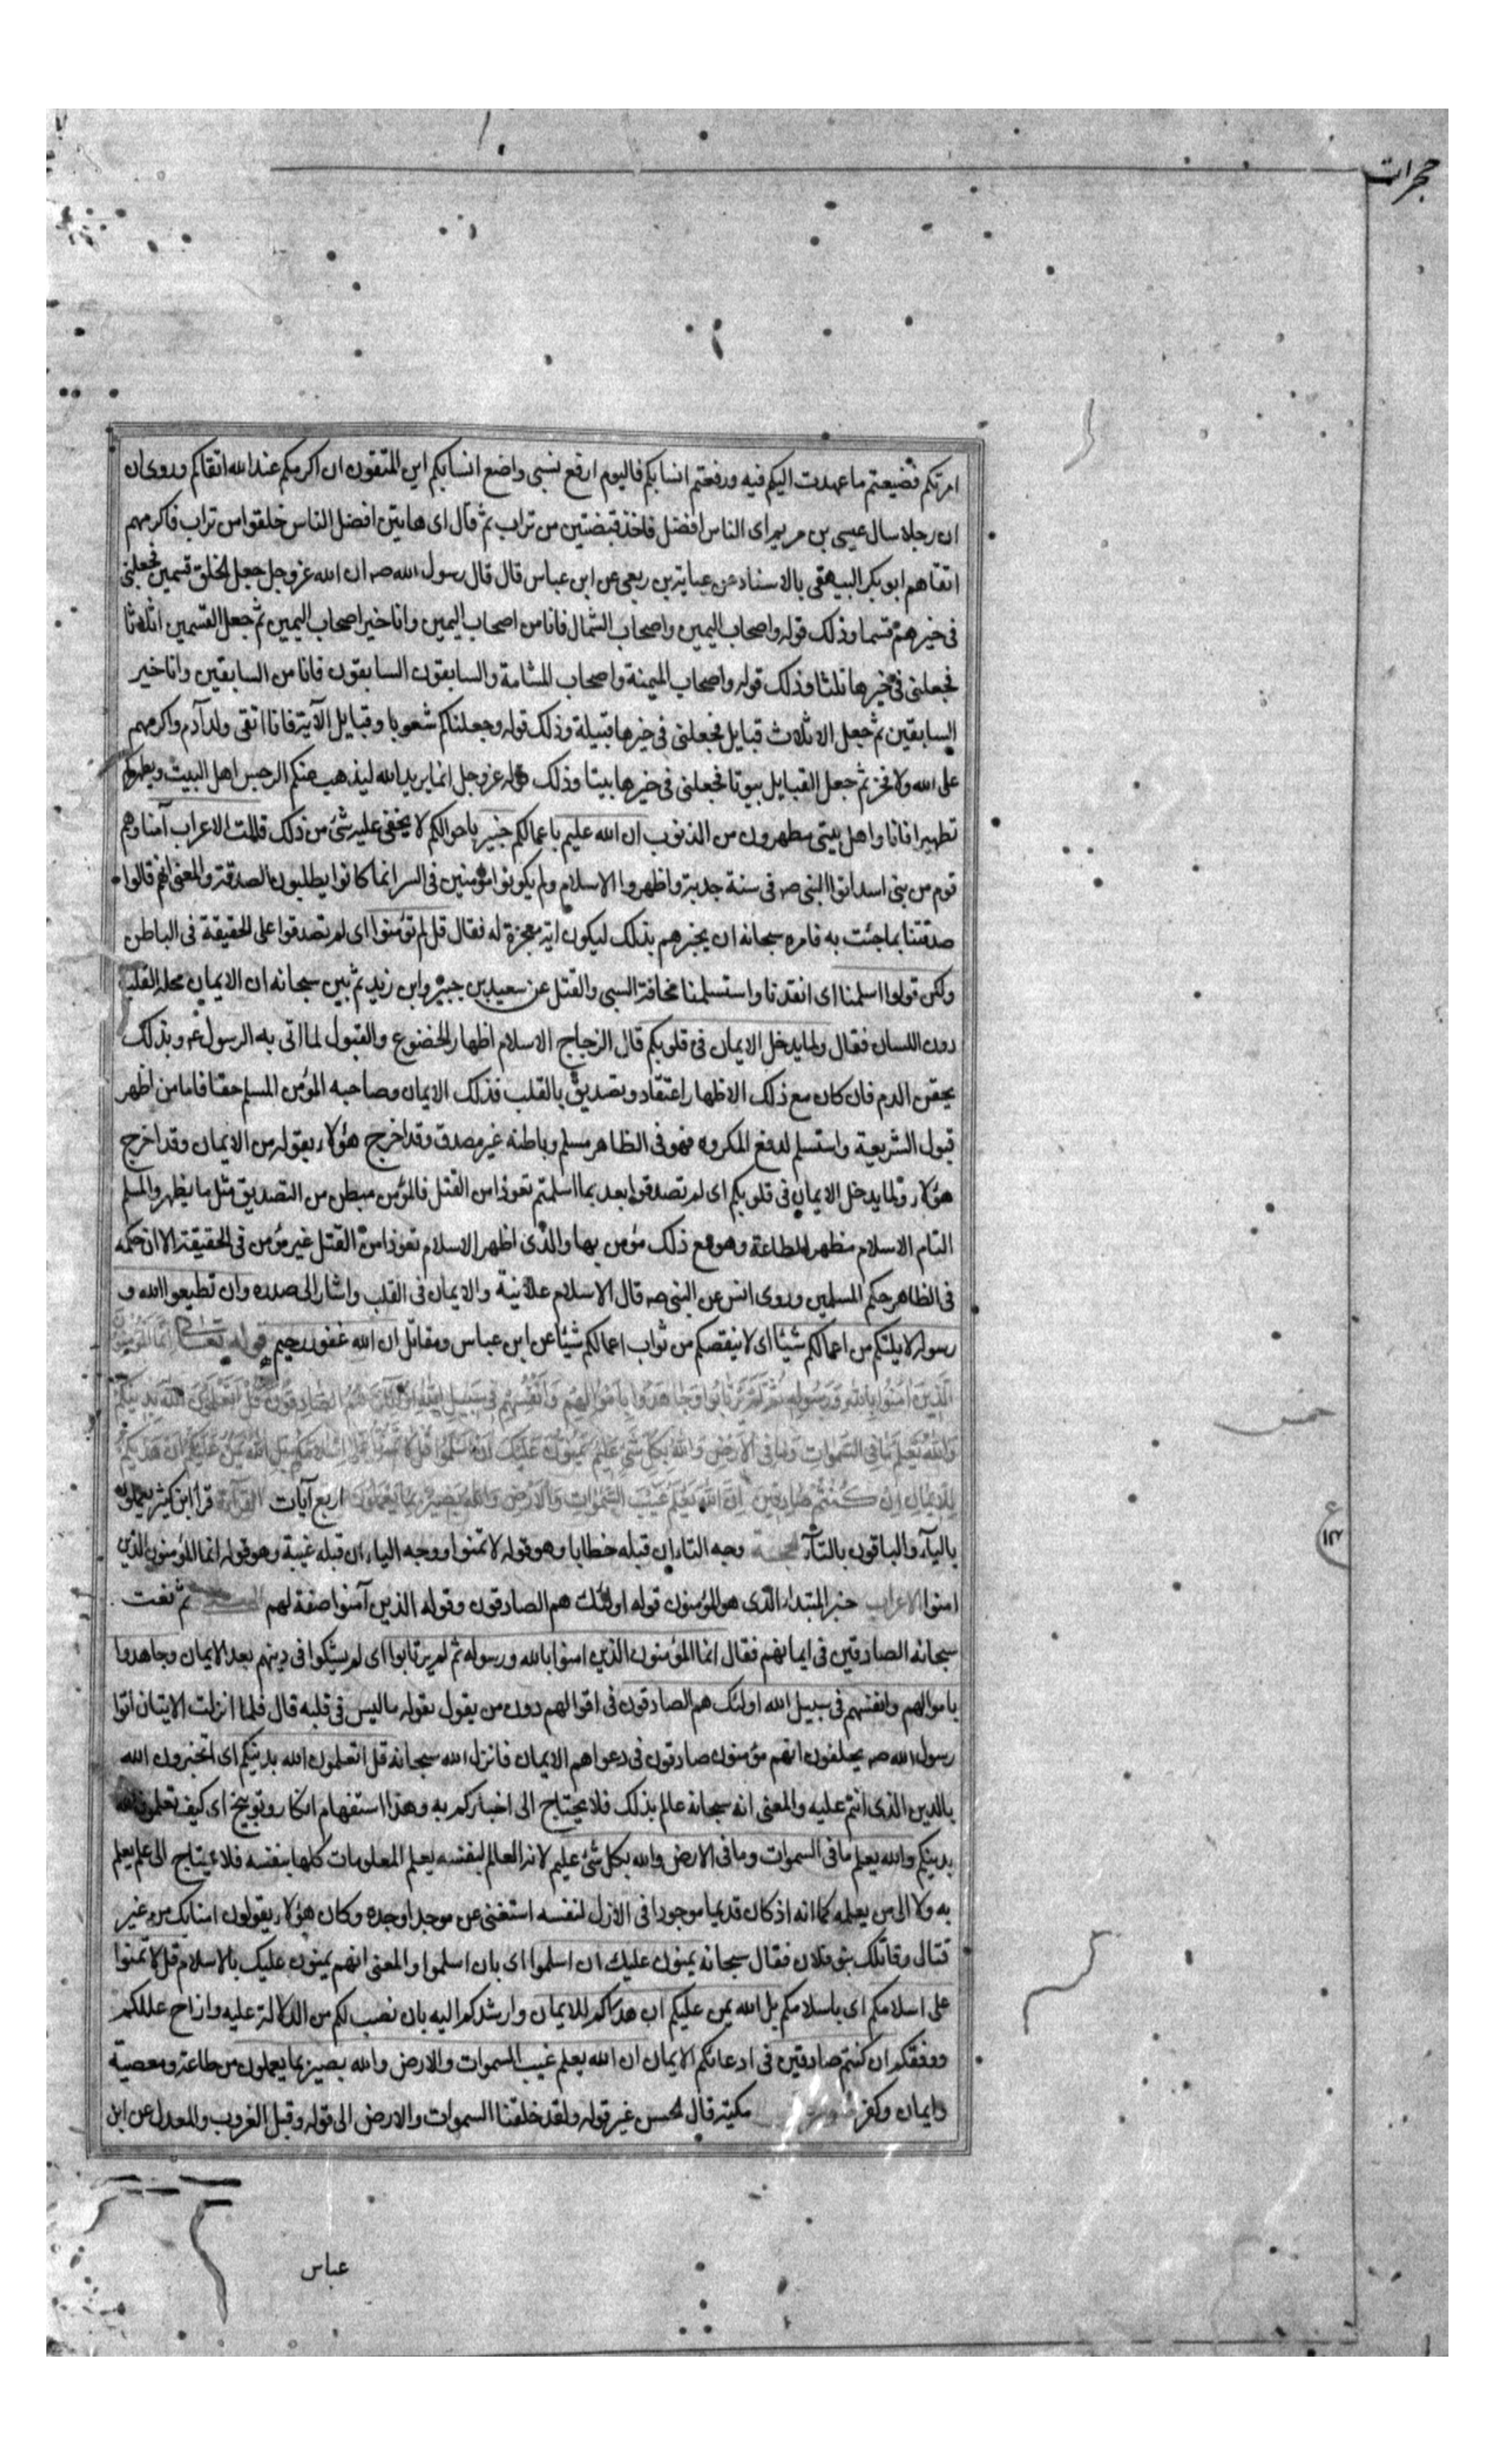 حجرات
امرتكم فضيعتم ما عهدت اليكم فيه ورفعتم انسابكم فاليوم ارفع نسبي واضع انسابكم اين المتقون ان اكرمكم عند الله اتقاكم وروى ان
ان رجلا سال عيسى بن مريم اى الناس افضل فاخذ قبضتين من تراب ثم قال اى هاتين افضل الناس خلقوا من تراب فاكرمهم
اتقاهم ابو بكر البيهقى بالاسناد عن عباية بن ربعى عن ابن عباس قال قال رسول الله صه ان الله عز وجل جعل الخلق قسمين فجعلنى
فى خيرهم قسما وذلك قوله واصحاب اليمين واصحاب الشمال فانا من اصحاب اليمين وانا خير اصحاب اليمين ثم جعل القسمين اثلاثا
فجعلنى فى خيرها ثلثا وذلك قوله واصحاب الميمنة واصحاب المشامة والسابقون السابقون فانا من السابقين وانا خير
السابقين ثم جعل الاثلاث قبايل فجعلنى فى خيرها قبيلة وذلك قوله وجعلناكم شعوبا وقبايل الآية فانا اتقى ولد آدم واكرمهم
على الله ولا فخر ثم جعل القبايل بيوتا فجعلنى فى خيرها بيتا وذلك قوله عز وجل انما يريد الله ليذهب عنكم الرجس اهل البيت ويطهركم
تطهيرا فانا واهل بيتى مطهرون من الذنوب ان الله عليم باعمالكم خبير باحوالكم لا يخفى عليه شئ من ذلك قالت الاعراب آمنا وهم
قوم من بنى اسد اتوا النبى صه فى سنة جدبة واظهروا الاسلام ولم يكونوا مؤمنين فى السر انما كانوا يطلبون الصدقة والمعنى انهم قالوا
صدقنا بما جئت به فامره سبحانه ان يخبرهم بذلك ليكون آية معجزة له فقال قل لم تؤمنوا اى لم تصدقوا على الحقيقة فى الباطن
ولكن قولوا اسلمنا اى انقدنا واستسلمنا مخافة السبى والقتل عن سعيد بن جبير وابن زيد ثم بين سبحانه ان الايمان محله القلب
دون اللسان فقال ولما يدخل الايمان فى قلوبكم قال الزجاج الاسلام اظهار الخضوع والقبول لما اتى به الرسول عم وبذلك
يحقن الدم فان كان مع ذلك الاظهار اعتقاد وتصديق بالقلب فذلك الايمان وصاحبه المؤمن المسلم حقا فاما من اظهر
قبول الشريعة واستسلم لدفع المكروه فهو فى الظاهر مسلم وباطنه غير مصدق وقد اخرج هؤلاء بقوله من الايمان وقد اخرج
هؤلاء ولما يدخل الايمان فى قلوبكم اى لم تصدقوا بعد بما اسلمتم تعوذا من القتل فالمؤمن مبطن من التصديق مثل ما يظهر والمسلم
التام الاسلام مظهر للطاعة وهو مع ذلك مؤمن بها والذى اظهر الاسلام تعوذا من القتل غير مؤمن فى الحقيقة الا ان حكمه
فى الظاهر حكم المسلمين وروى انس عن النبى صه قال الاسلام علانية والايمان فى القلب واشار الى صدره وان تطيعوا الله و
رسوله لا يلتكم من اعمالكم شيئا اى لا ينقصكم من ثواب اعمالكم شيئا عن ابن عباس ومقاتل ان الله غفور رحيم قوله تعالى انما المؤمنون
الَّذِينَ آمَنُوا بِاللهِ وَرَسُولِهِ ثُمَّ لَمْ يَرْتَابُوا وَجَاهَدُوا بِأَمْوَالِهِمْ وَأَنْفُسِهِمْ فِي سَبِيلِ اللهِ أُولئِكَ هُمُ الصَّادِقُونَ قُلْ أَتُعَلِّمُونَ اللهَ بِدِينِكُمْ
وَاللهُ يَعْلَمُ مَا فِي السَّمَوَاتِ وَمَا فِي الْأَرْضِ وَاللهُ بِكُلِّ شَيْءٍ عَلِيمٌ يَمُنُّونَ عَلَيْكَ أَنْ أَسْلَمُوا قُلْ لَا تَمُنُّوا عَلَيَّ إِسْلَامَكُمْ بَلِ اللهُ يَمُنُّ عَلَيْكُمْ أَنْ هَدَاكُمْ
لِلْإِيمَانِ إِنْ كُنْتُمْ صَادِقِينَ إِنَّ اللهَ يَعْلَمُ غَيْبَ السَّمَوَاتِ وَالْأَرْضِ وَاللهُ بَصِيرٌ بِمَا يَعْمَلُونَ اربع آيات القراءة قرا ابن كثير يعملون
بالياء والباقون بالتاء الحجة وجه التاء ان قبله خطابا وهو قوله لا تمنوا ووجه الياء ان قبله غيبة وهو قوله انما المؤمنون الذين
امنوا الاعراب خبر المبتداء الذى هو المؤمنون قوله اولئك هم الصادقون وقوله الذين آمنوا صفة لهم ثم نعت
سبحانه الصادقين فى ايمانهم فقال انما المؤمنون الذين امنوا بالله ورسوله ثم لم يرتابوا اى لم يشكوا فى دينهم بعد الايمان وجاهدوا
باموالهم وانفسهم فى سبيل الله اولئك هم الصادقون فى اقوالهم دون من يقول بقوله ما ليس فى قلبه قال فلما انزلت الايتان اتوا
رسول الله صه يحلفون انهم مؤمنون صادقون فى دعواهم الايمان فانزل الله سبحانه قل اتعلمون الله بدينكم اى اتخبرون الله
بالدين الذى انتم عليه والمعنى انه سبحانه عالم بذلك فلا يحتاج الى اخباركم به وهذا استفهام انكار وتوبيخ اى كيف تعلمون الله
بدينكم والله يعلم ما فى السموات وما فى الارض والله بكل شئ عليم لانه العالم لنفسه يعلم المعلومات كلها بنفسه فلا يحتاج الى علم يعلم
به ولا الى من يعلمه كما انه اذ كان قديما موجودا فى الازل لنفسه استغنى عن موجد اوجده وكان هؤلاء يقولون امنا بك من غير
قتال وقاتلك بنو فلان فقال سبحانه يمنون عليك ان اسلموا اى بان اسلموا والمعنى انهم يمنون عليك بالاسلام قل لا تمنوا
على اسلامكم اى باسلامكم بل الله يمن عليكم ان هداكم للايمان وارشدكم اليه بان نصب لكم من الدلالة عليه وازاح عللكم
ووفقكم ان كنتم صادقين فى ادعائكم الايمان ان الله يعلم غيب السموات والارض والله بصير بما يعملون من طاعة ومعصية
وايمان وكفر مكية قال الحسن غير قوله ولقد خلقنا السموات والارض الى قوله وقبل الغروب والمعدل عن ابن
عباس
خمس
ع